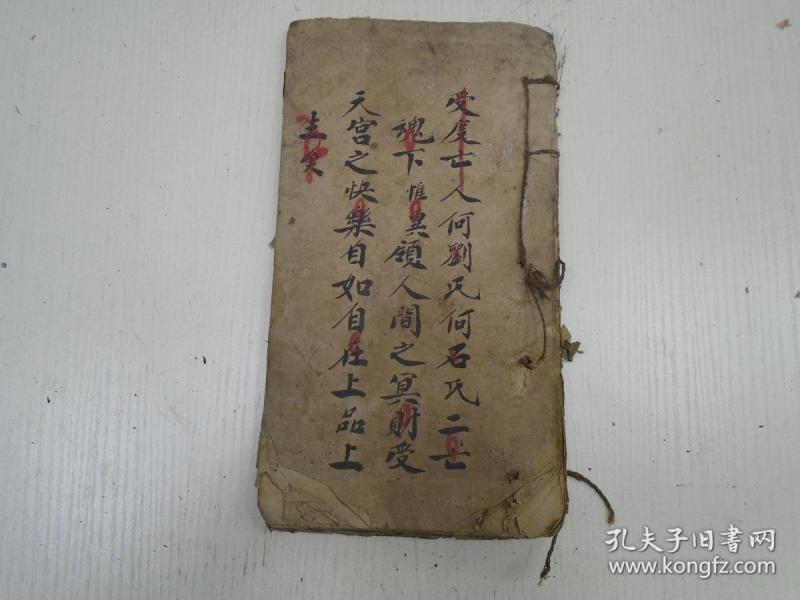 受度亡人何劉氏何石氏二亡
魂下惟冀領人間之冥財受
天宮之快樂自如自在上品上
生矣
孔夫子旧书网
www.kongfz.com